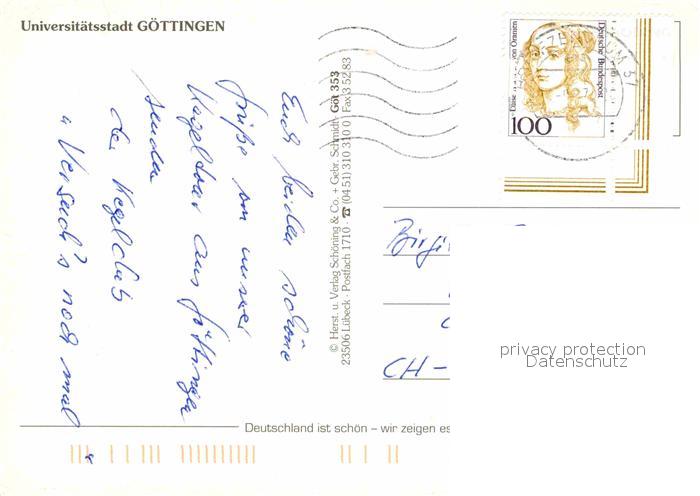 Universitätsstadt GÖTTINGEN
Euch beiden schöne
Grüße von unserer
Kegeltour aus Göttingen
senden
die Kegelclub
"Versuch's noch mal"
© Herst. u. Verlag Schöning & Co. + Gebr. Schmidt · Göt 353
23506 Lübeck · Postfach 1710 · ☎ (04 51) 310 310 0 · Fax 3 52 83
Deutsche Bundespost
Oranien
100
CH -
privacy protection
Datenschutz
Deutschland ist schön – wir zeigen es